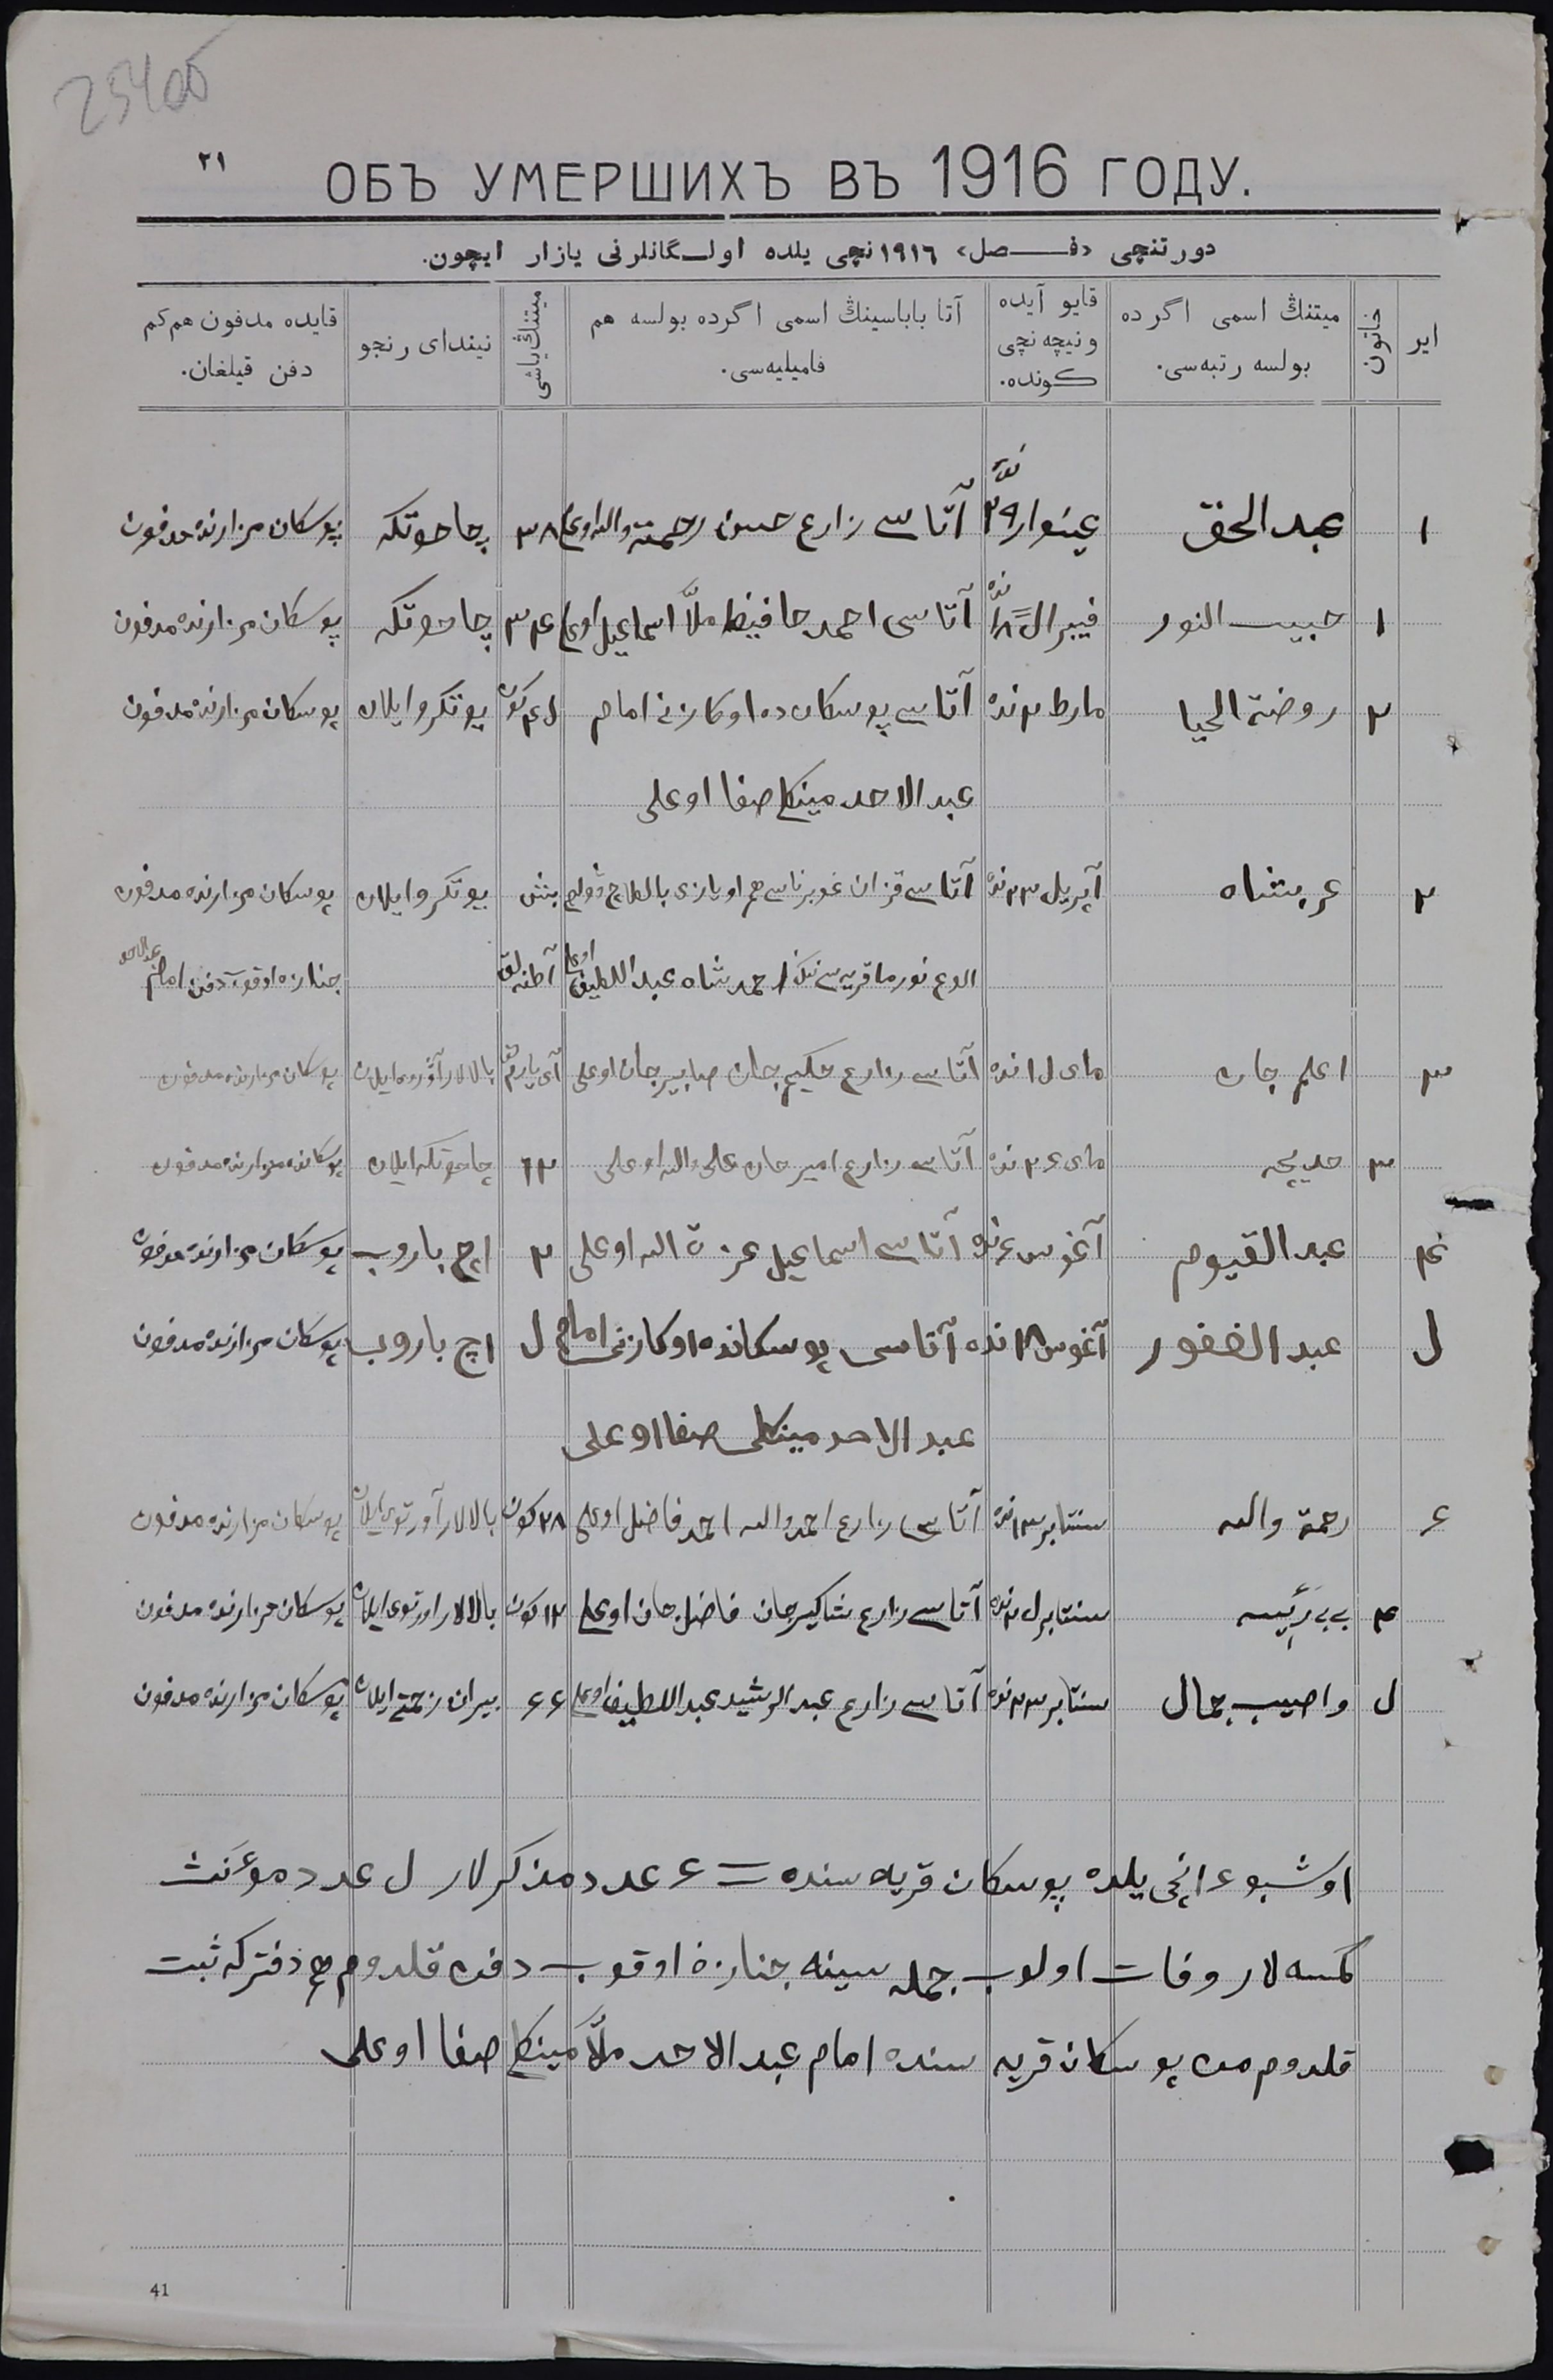 25400
٢١
ОБЪ УМЕРШИХЪ ВЪ 1916 ГОДУ.
دورتنچی «فـــصل» ١٩١٦ نچی یلده اولـگانلرنی یازار ایچون.
ایر
خاتون
میتنڭ اسمی اگرده بولسه رتبه‌سی.
قایو آیده ونیچه نچی کونده.
آتا باباسینڭ اسمی اگرده بولسه هم فامیلیه‌سی.
میتنڭ یاشی
نیندای رنجو
قایده مدفون هم‌کم دفن قیلغان.
١ عبد الحق غینوار ٢٩ آتاسی زارع حسن رحمة والله اوغلی ٣٨ چاحوتکه پوسکان مزارنده مدفون
١ حبیب النور فیبرال ١٨ نده آتاسی احمد حافیظ ملاّ اسماعیل اوغلی ٣۴ چاحوتکه پوسکان مزارنده مدفون
٢ روضة الحیا مارط ٢ نده آتاسی پوسکان ده اوکازنی امام ل۴ کون یوتکرو ایلان پوسکان مزارنده مدفون
عبد الاحد مینکلی صفا اوغلی
٢ عربشاه آپریل ٢٣ نده آتاسی قزان غوبرناسی هم اویازی بالطاچ ولوص بش یوتکرو ایلان پوسکان مزارنده مدفون
الوغ نورما قریه سی نیڭ احمد شاه عبد اللطیف اوغلی آطنه لق جنازه اوقوب دفن امام عبد الاحد
٣ اعلم جان مای ل١ نده آتاسی زارع حکیم جان صابیر جان اوغلی آی یارم بالالار آوروی ایلان پوسکان مزارنده مدفون
٣ خدیچه مای ٢۶ نده آتاسی زارع امیر جان علی والله اوغلی ٦٢ چاحوتکه ایلان پوسکانده مزارنده مدفون
۴ عبد القیوم آغوس ۶ نده آتاسی اسماعیل عزة الله اوغلی ٢ اچ باروب پوسکان مزارنده مدفون
ل عبد الغفور آغوس ١٨ نده آتاسی پوسکانده اوکازنی امام ل اچ باروب پوسکان مزارنده مدفون
عبد الاحد مینکلی صفا اوغلی
۶ رحمة والله سنتابر ١٣ نده آتاسی زارع احمد والله احمد فاضل اوغلی ٢٨ کون بالالار آورتوی ایلان پوسکان مزارنده مدفون
۴ بی بی رئیسه سنتابر ل٢ نده آتاسی زارع شاکیر جان فاضل جان اوغلی ١٢ کون بالالار اورتوی ایلان پوسکان مزارنده مدفون
ل واصیب جمال سنتابر ٢٣ نده آتاسی زارع عبد الرشید عبد اللطیف اوغلی ۶۶ بیران زحمتی ایلان پوسکان مزارنده مدفون
اوشبو ١۶ نچی یلده پوسکان قریه سنده = ۶ عدد مذکر لار ل عدد موءنث
کمسه لار وفات اولوب جمله سینه جنازه اوقوب دفن قلدوم هم دفترکه ثبت
قلدوم من پوسکان قریه سنده امام عبد الاحد ملاّ مینکلی صفا اوغلی
41